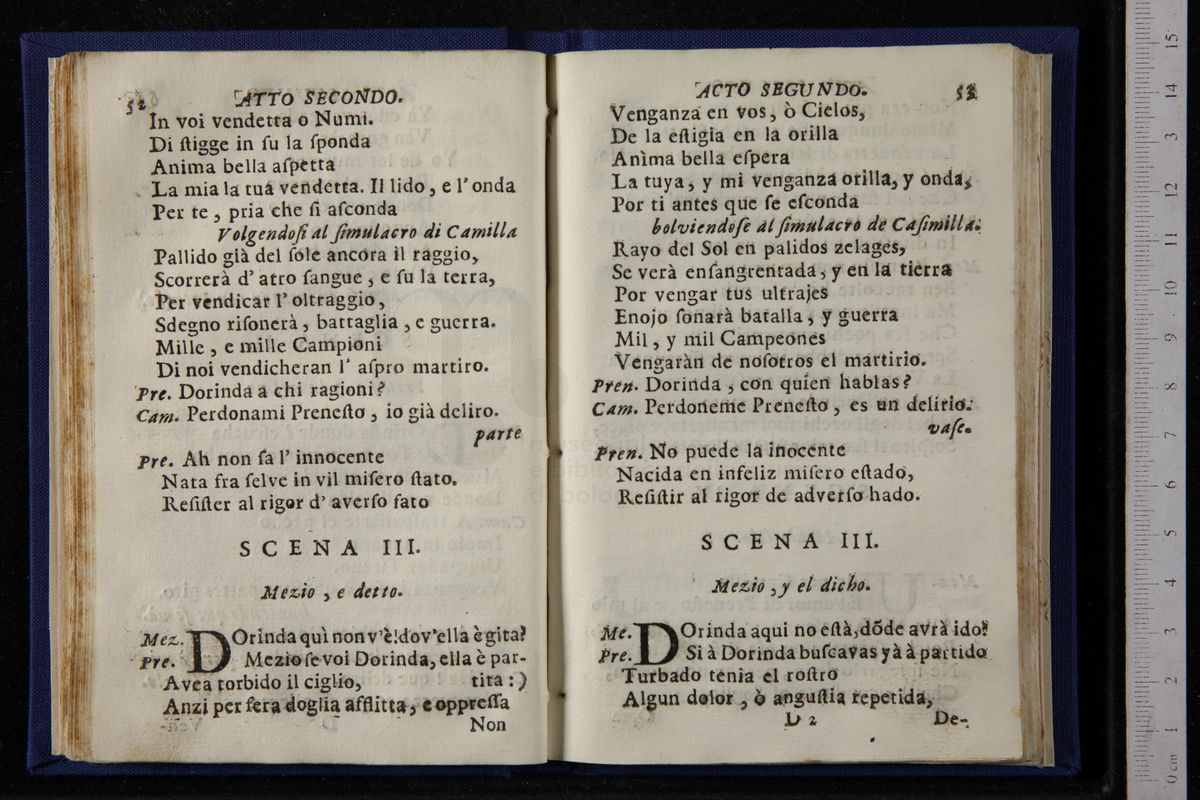 52 ATTO SECONDO.
In voi vendetta o Numi.
Di ſtigge in ſu la ſponda
Anima bella aſpetta
La mia la tua vendetta. Il lido, e l'onda
Per te, pria che ſi aſconda
Volgendoſi al ſimulacro di Camilla
Pallido già del ſole ancora il raggio,
Scorrerà d'atro ſangue, e ſu la terra,
Per vendicar l'oltraggio,
Sdegno riſonerà, battaglia, e guerra.
Mille, e mille Campioni
Di noi vendicheran l'aſpro martiro.
Pre. Dorinda a chi ragioni?
Cam. Perdonami Preneſto, io già deliro.
parte
Pre. Ah non ſa l'innocente
Nata fra ſelve in vil miſero ſtato.
Reſiſter al rigor d'averſo fato
SCENA III.
Mezio, e detto.
Mez. DOrinda quì non v'è! dov'ella è gita?
Pre. Mezio ſe voi Dorinda, ella è par-
Avea torbido il ciglio, tita:)
Anzi per fera doglia afflitta, e oppreſſa
Non
ACTO SEGUNDO. 53
Venganza en vos, ò Cielos,
De la eſtigia en la orilla
Anìma bella eſpera
La tuya, y mi venganza orilla, y onda,
Por ti antes que ſe eſconda
bolviendoſe al ſimulacro de Caſimilla:
Rayo del Sol en palidos zelages,
Se verà enſangrentada, y en la tierra
Por vengar tus ultrajes
Enojo ſonarà batalla, y guerra
Mil, y mil Campeones
Vengaràn de noſotros el martirio.
Pren. Dorinda, con quien hablas?
Cam. Perdoneme Preneſto, es un delirio.
vaſe.
Pren. No puede la inocente
Nacida en infeliz miſero eſtado,
Reſiſtir al rigor de adverſo hado.
SCENA III.
Mezio, y el dicho.
Me. DOrinda aqui no eſtà, dõde avrà ido?
Pre. Si à Dorinda buſcavas yà à partido
Turbado tenia el roſtro
Algun dolor, ò anguſtia repetida,
D 2 De-
0 cm 1 2 3 4 5 6 7 8 9 10 11 12 13 14 15